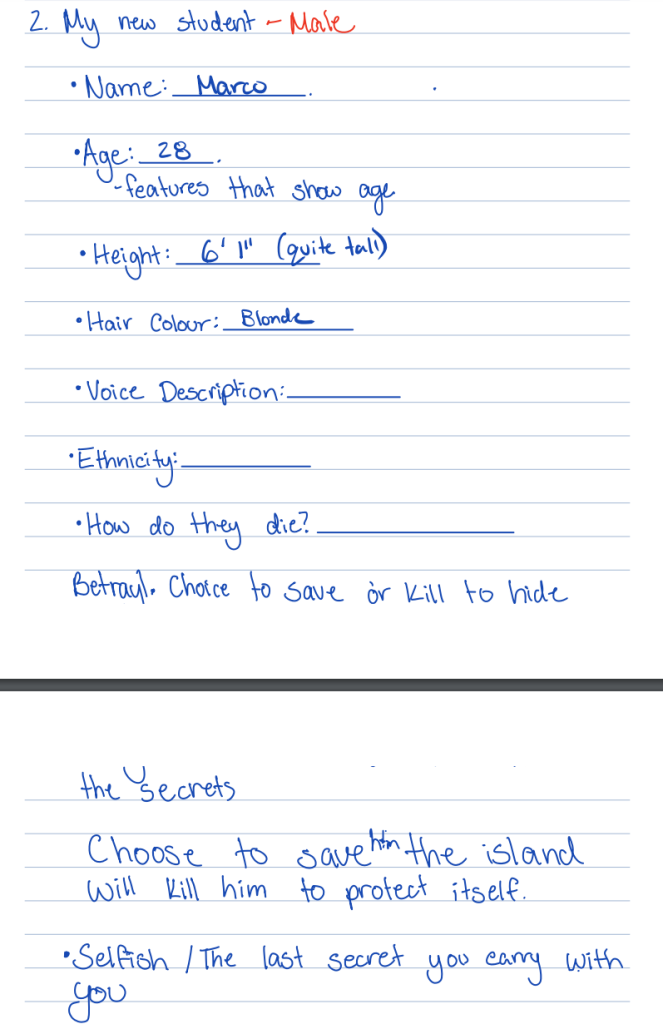 2. My new student - Male
• Name: Marco.
• Age: 28.
- features that show age
• Height: 6' 1" (quite tall)
• Hair Colour: Blonde
• Voice Description:
• Ethnicity:
• How do they die?
Betrayl. Choice to save or kill to hide
the secrets
Choose to save him the island
will kill him to protect itself.
• Selfish / The last secret you carry with
you